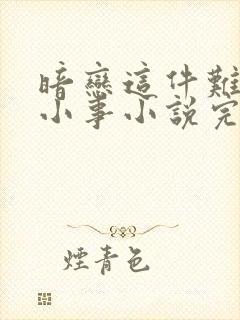 暗戀這件難
小事小說完
煙青色